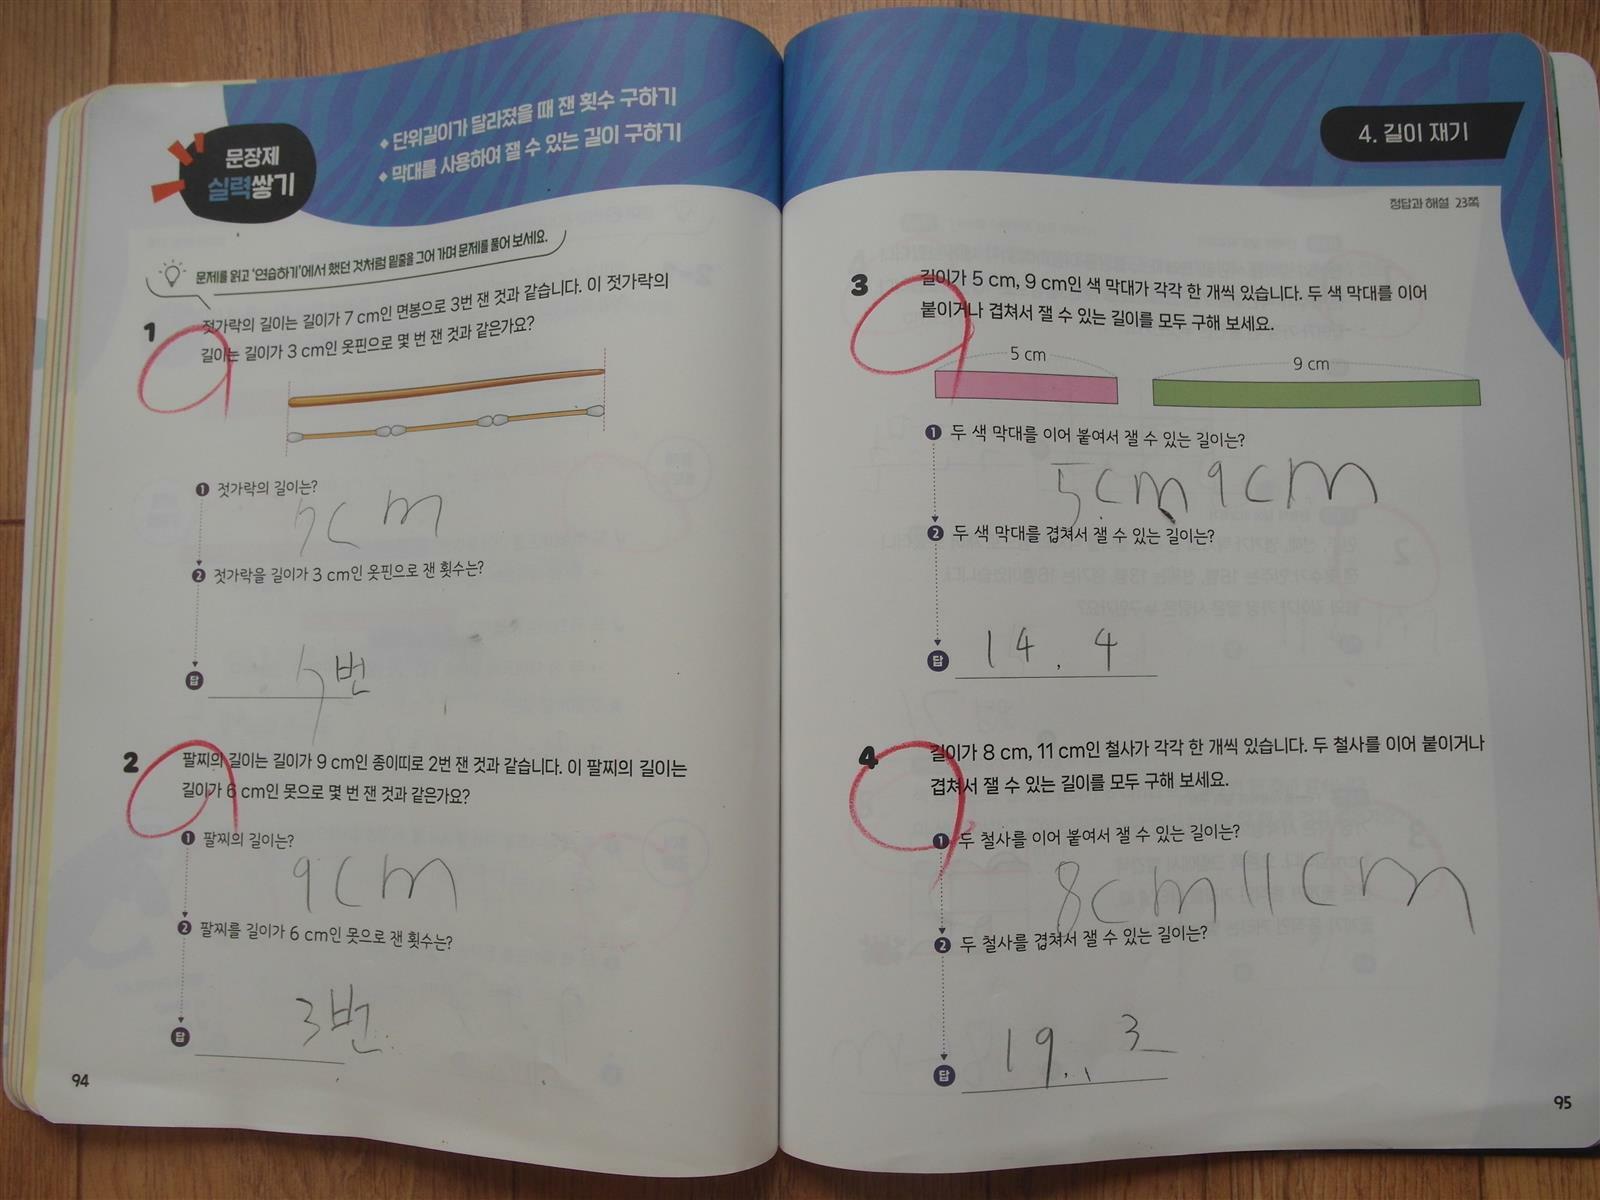 문장제
실력쌓기
◆ 단위길이가 달라졌을 때 잰 횟수 구하기
◆ 막대를 사용하여 잴 수 있는 길이 구하기
문제를 읽고 '연습하기'에서 했던 것처럼 밑줄을 그어 가며 문제를 풀어 보세요.
1 젓가락의 길이는 길이가 7 cm인 면봉으로 3번 잰 것과 같습니다. 이 젓가락의
길이는 길이가 3 cm인 옷핀으로 몇 번 잰 것과 같은가요?
1 젓가락의 길이는?
cm
2 젓가락을 길이가 3 cm인 옷핀으로 잰 횟수는?
답 번
2 팔찌의 길이는 길이가 9 cm인 종이띠로 2번 잰 것과 같습니다. 이 팔찌의 길이는
길이가 6 cm인 못으로 몇 번 잰 것과 같은가요?
1 팔찌의 길이는?
9cm
2 팔찌를 길이가 6 cm인 못으로 잰 횟수는?
3번
답
94
4. 길이 재기
정답과 해설 23쪽
3 길이가 5 cm, 9 cm인 색 막대가 각각 한 개씩 있습니다. 두 색 막대를 이어
붙이거나 겹쳐서 잴 수 있는 길이를 모두 구해 보세요.
5 cm 9 cm
1 두 색 막대를 이어 붙여서 잴 수 있는 길이는?
5cm 9cm
2 두 색 막대를 겹쳐서 잴 수 있는 길이는?
답 14, 4
4 길이가 8 cm, 11 cm인 철사가 각각 한 개씩 있습니다. 두 철사를 이어 붙이거나
겹쳐서 잴 수 있는 길이를 모두 구해 보세요.
1 두 철사를 이어 붙여서 잴 수 있는 길이는?
8cm 11cm
2 두 철사를 겹쳐서 잴 수 있는 길이는?
답 19, 3
95